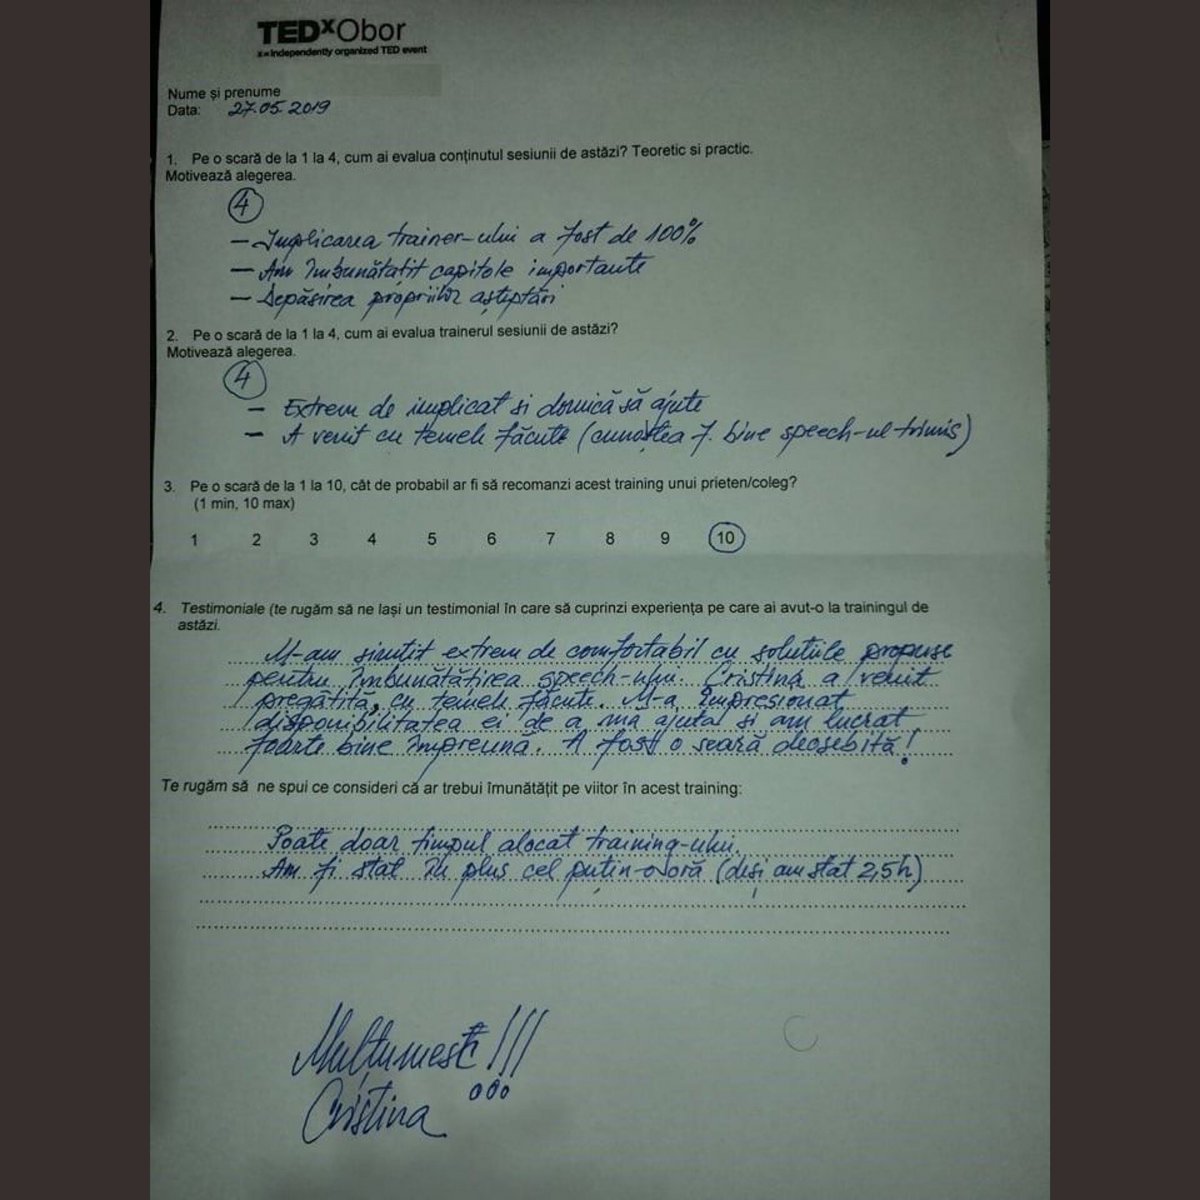 TEDxObor
x = independently organized TED event
Nume și prenume
Data: 27.05.2019
1. Pe o scară de la 1 la 4, cum ai evalua conținutul sesiunii de astăzi? Teoretic si practic.
Motivează alegerea.
4
- Implicarea trainer-ului a fost de 100%
- Am îmbunătățit capitole importante
- Depăsirea propriilor așteptări
2. Pe o scară de la 1 la 4, cum ai evalua trainerul sesiunii de astăzi?
Motivează alegerea.
4
- Extrem de implicat si dornică să ajute
- A venit cu temele făcute (cunoștea f. bine speech-ul trimis)
3. Pe o scară de la 1 la 10, cât de probabil ar fi să recomanzi acest training unui prieten/coleg?
(1 min, 10 max)
1 2 3 4 5 6 7 8 9 10
4. Testimoniale (te rugăm să ne lași un testimonial în care să cuprinzi experiența pe care ai avut-o la trainingul de
astăzi.
M-am simtit extrem de comfortabil cu solutiile propuse
pentru îmbunătățirea speech-ului. Cristina a venit
pregătită, cu temele făcute. M-a impresionat
disponibilitatea ei de a mă ajuta si am lucrat
foarte bine împreună. A fost o seară deosebită!
Te rugăm să ne spui ce consideri că ar trebui îmunătățit pe viitor în acest training:
Poate doar timpul alocat training-ului.
Am fi stat în plus cel puțin o oră (deși am stat 2,5h)
Mulțumesc!!!
Cristina